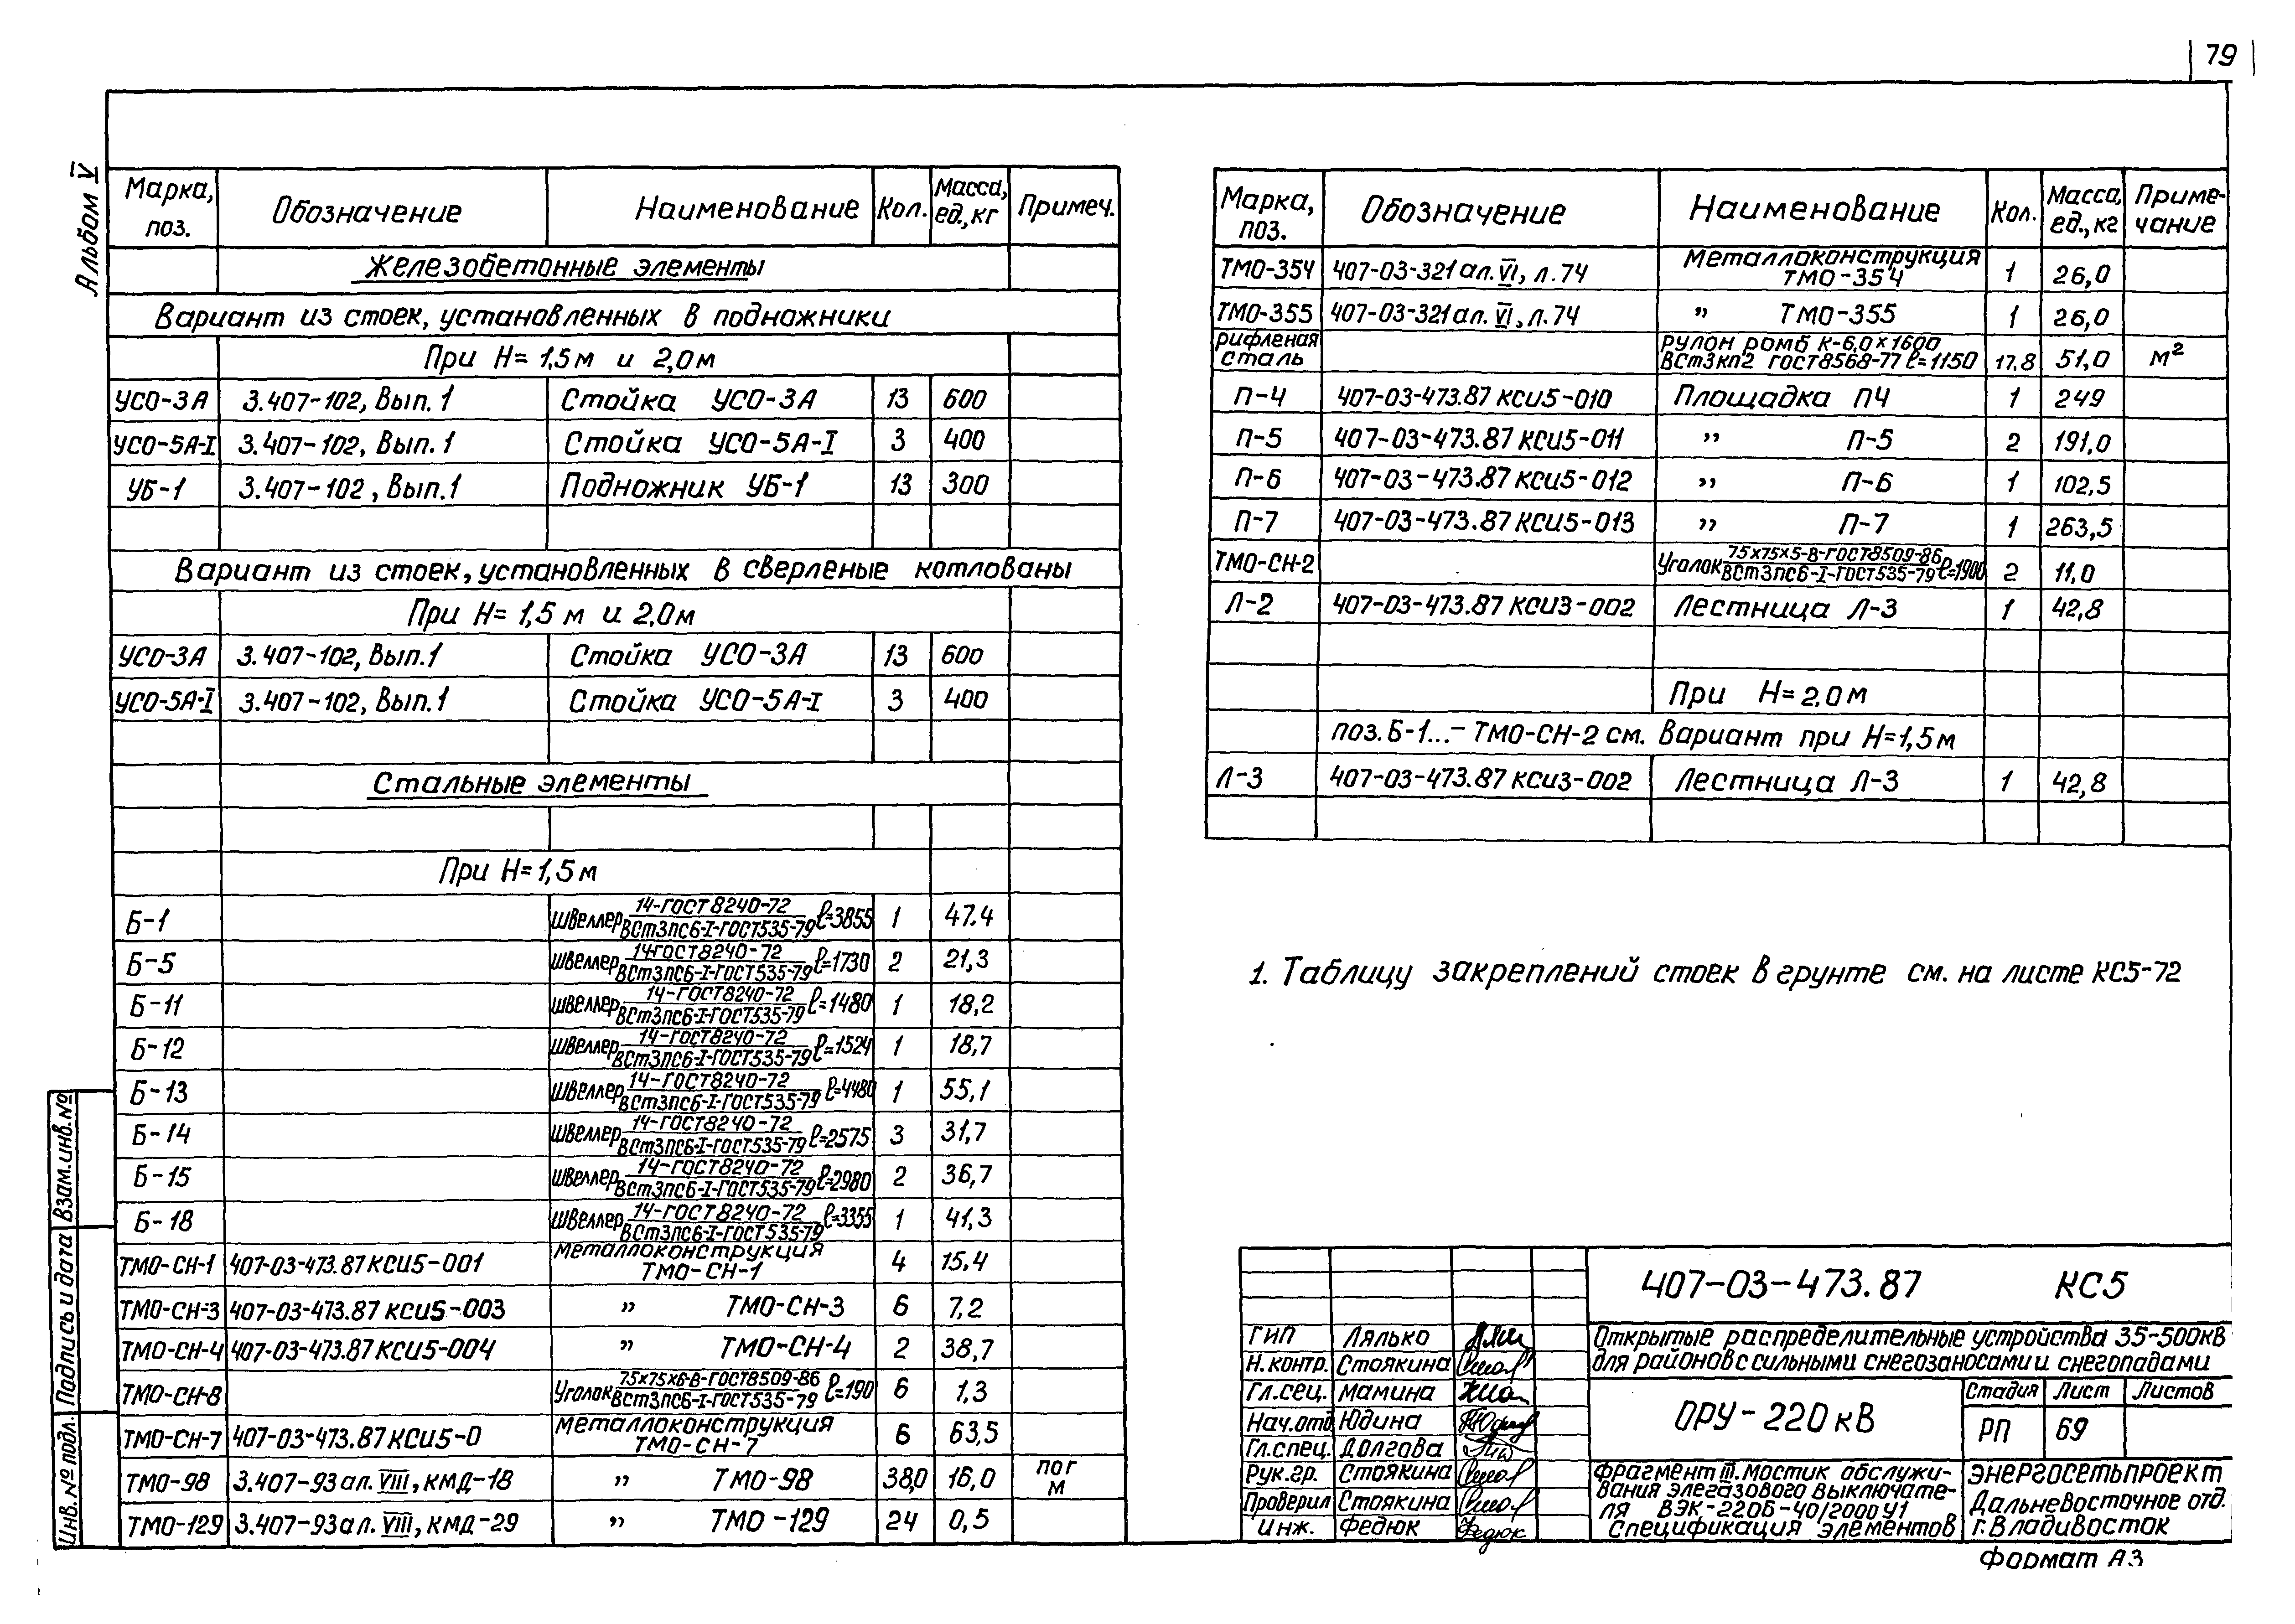 79
Альбом V
Марка, поз. Обозначение Наименование Кол. Масса, ед., кг Примеч.
Железобетонные элементы
Вариант из стоек, установленных в подножники
При H= 1,5м и 2,0м
УСО-3А 3.407-102, Вып. 1 Стойка УСО-3А 13 600
УСО-5А-I 3.407-102, Вып. 1 Стойка УСО-5А-I 3 400
УБ-1 3.407-102, Вып.1 Подножник УБ-1 13 300
Вариант из стоек, установленных в сверленые котлованы
При H= 1,5 м и 2,0м
УСО-3А 3.407-102, Вып.1 Стойка УСО-3А 13 600
УСО-5А-I 3.407-102, Вып.1 Стойка УСО-5А-I 3 400
Стальные элементы
При H=1,5м
Б-1 Швеллер 14-ГОСТ8240-72 / ВСт3пс6-I-ГОСТ535-79 ℓ=3855 1 47.4
Б-5 Швеллер 14ГОСТ8240-72 / ВСт3пс6-I-ГОСТ535-79 ℓ=1730 2 21,3
Б-11 Швеллер 14-ГОСТ8240-72 / ВСт3пс6-I-ГОСТ535-79 ℓ=1480 1 18,2
Б-12 Швеллер 14-ГОСТ8240-72 / ВСт3пс6-I-ГОСТ535-79 ℓ=1524 1 18,7
Б-13 Швеллер 14-ГОСТ8240-72 / ВСт3пс6-I-ГОСТ535-79 ℓ=4480 1 55,1
Б-14 Швеллер 14-ГОСТ8240-72 / ВСт3пс6-I-ГОСТ535-79 ℓ=2575 3 31,7
Б-15 Швеллер 14-ГОСТ8240-72 / ВСт3пс6-I-ГОСТ535-79 ℓ=2980 2 36,7
Б-18 Швеллер 14-ГОСТ8240-72 / ВСт3пс6-I-ГОСТ535-79 ℓ=3355 1 41,3
ТМО-СН-1 407-03-473.87 КСИ5-001 Металлоконструкция ТМО-СН-1 4 15.4
ТМО-СН-3 407-03-473.87 КСИ5-003 " ТМО-СН-3 6 7,2
ТМО-СН-4 407-03-473.87 КСИ5-004 " ТМО-СН-4 2 38,7
ТМО-СН-8 Уголок 75x75x6-В-ГОСТ8509-86 / ВСт3пс6-I-ГОСТ535-79 ℓ=190 6 1,3
ТМО-СН-7 407-03-473.87 КСИ5-0 Металлоконструкция ТМО-СН-7 6 63,5
ТМО-98 3.407-93 ал. VIII, КМД-18 " ТМО-98 38,0 16,0 пог м
ТМО-129 3.407-93 ал. VIII, КМД-29 " ТМО-129 24 0,5
Марка, поз. Обозначение Наименование Кол. Масса, ед., кг Примечание
ТМО-354 407-03-321 ал. VI, л.74 Металлоконструкция ТМО-354 1 26,0
ТМО-355 407-03-321 ал. VI, л.74 " ТМО-355 1 26,0
рифленая сталь рулон ромб К-6,0×1600 ВСт3кп2 ГОСТ8568-77 ℓ=1150 17.8 51,0 м²
П-4 407-03-473.87 КСИ5-010 Площадка П4 1 249
П-5 407-03-473.87 КСИ5-011 " П-5 2 191,0
П-6 407-03-473.87 КСИ5-012 " П-6 1 102,5
П-7 407-03-473.87 КСИ5-013 " П-7 1 263,5
ТМО-СН-2 Уголок 75x75x5-В-ГОСТ8509-86 / ВСт3пс6-I-ГОСТ535-79 ℓ=1900 2 11.0
Л-2 407-03-473.87 КСИ3-002 Лестница Л-3 1 42,8
При H=2,0м
поз. Б-1...-ТМО-СН-2 см. Вариант при H=1,5м
Л-3 407-03-473.87 КСИ3-002 Лестница Л-3 1 42,8
1. Таблицу закреплений стоек в грунте см. на листе КС5-72
407-03-473.87 КС5
ГИП Лялько
Н.контр. Стоякина
Гл.сец. Мамина
Нач.отд Юдина
Гл.спец. Долгова
Рук.гр. Стоякина
Проверил Стоякина
Инж. Федюк
Открытые распределительные устройства 35-500кВ
для районов с сильными снегозаносами и снегопадами
ОРУ-220 кВ
Стадия Лист Листов
РП 69
Фрагмент III. Мостик обслужи-
вания элегазового выключате-
ля ВЭК-220Б-40/2000У1
Спецификация элементов
Энергосетьпроект
Дальневосточное отд.
г. Владивосток
Формат А3
Взам.инв.№
Подпись и дата
Инв.№ подл.